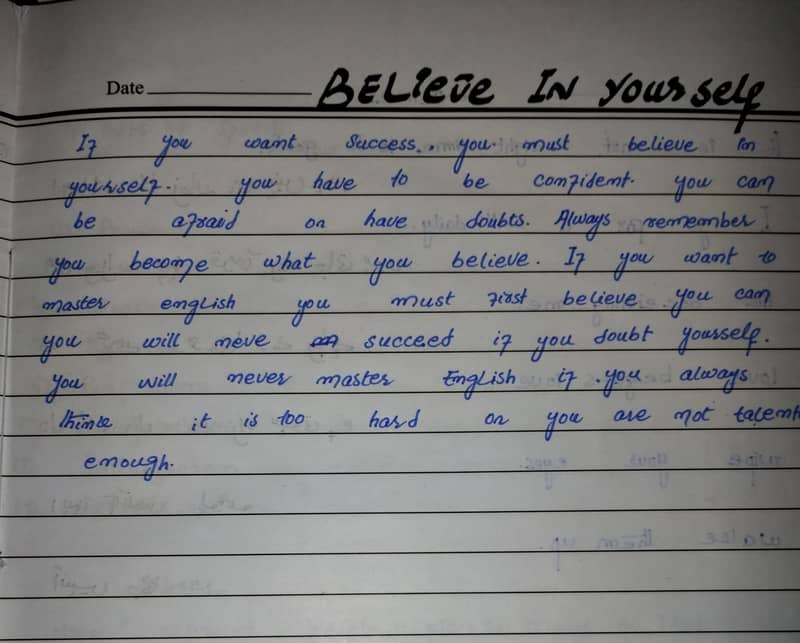 Date BELIEVE IN yourself
If you want Success. you must believe in
yourself. you have to be confident. you can
be afraid or have doubts. Always remember
you become what you believe. If you want to
master english you must first believe you can
you will neve succeed if you doubt yourself.
you will never master English if you always
think it is too hard or you are not talent
enough.